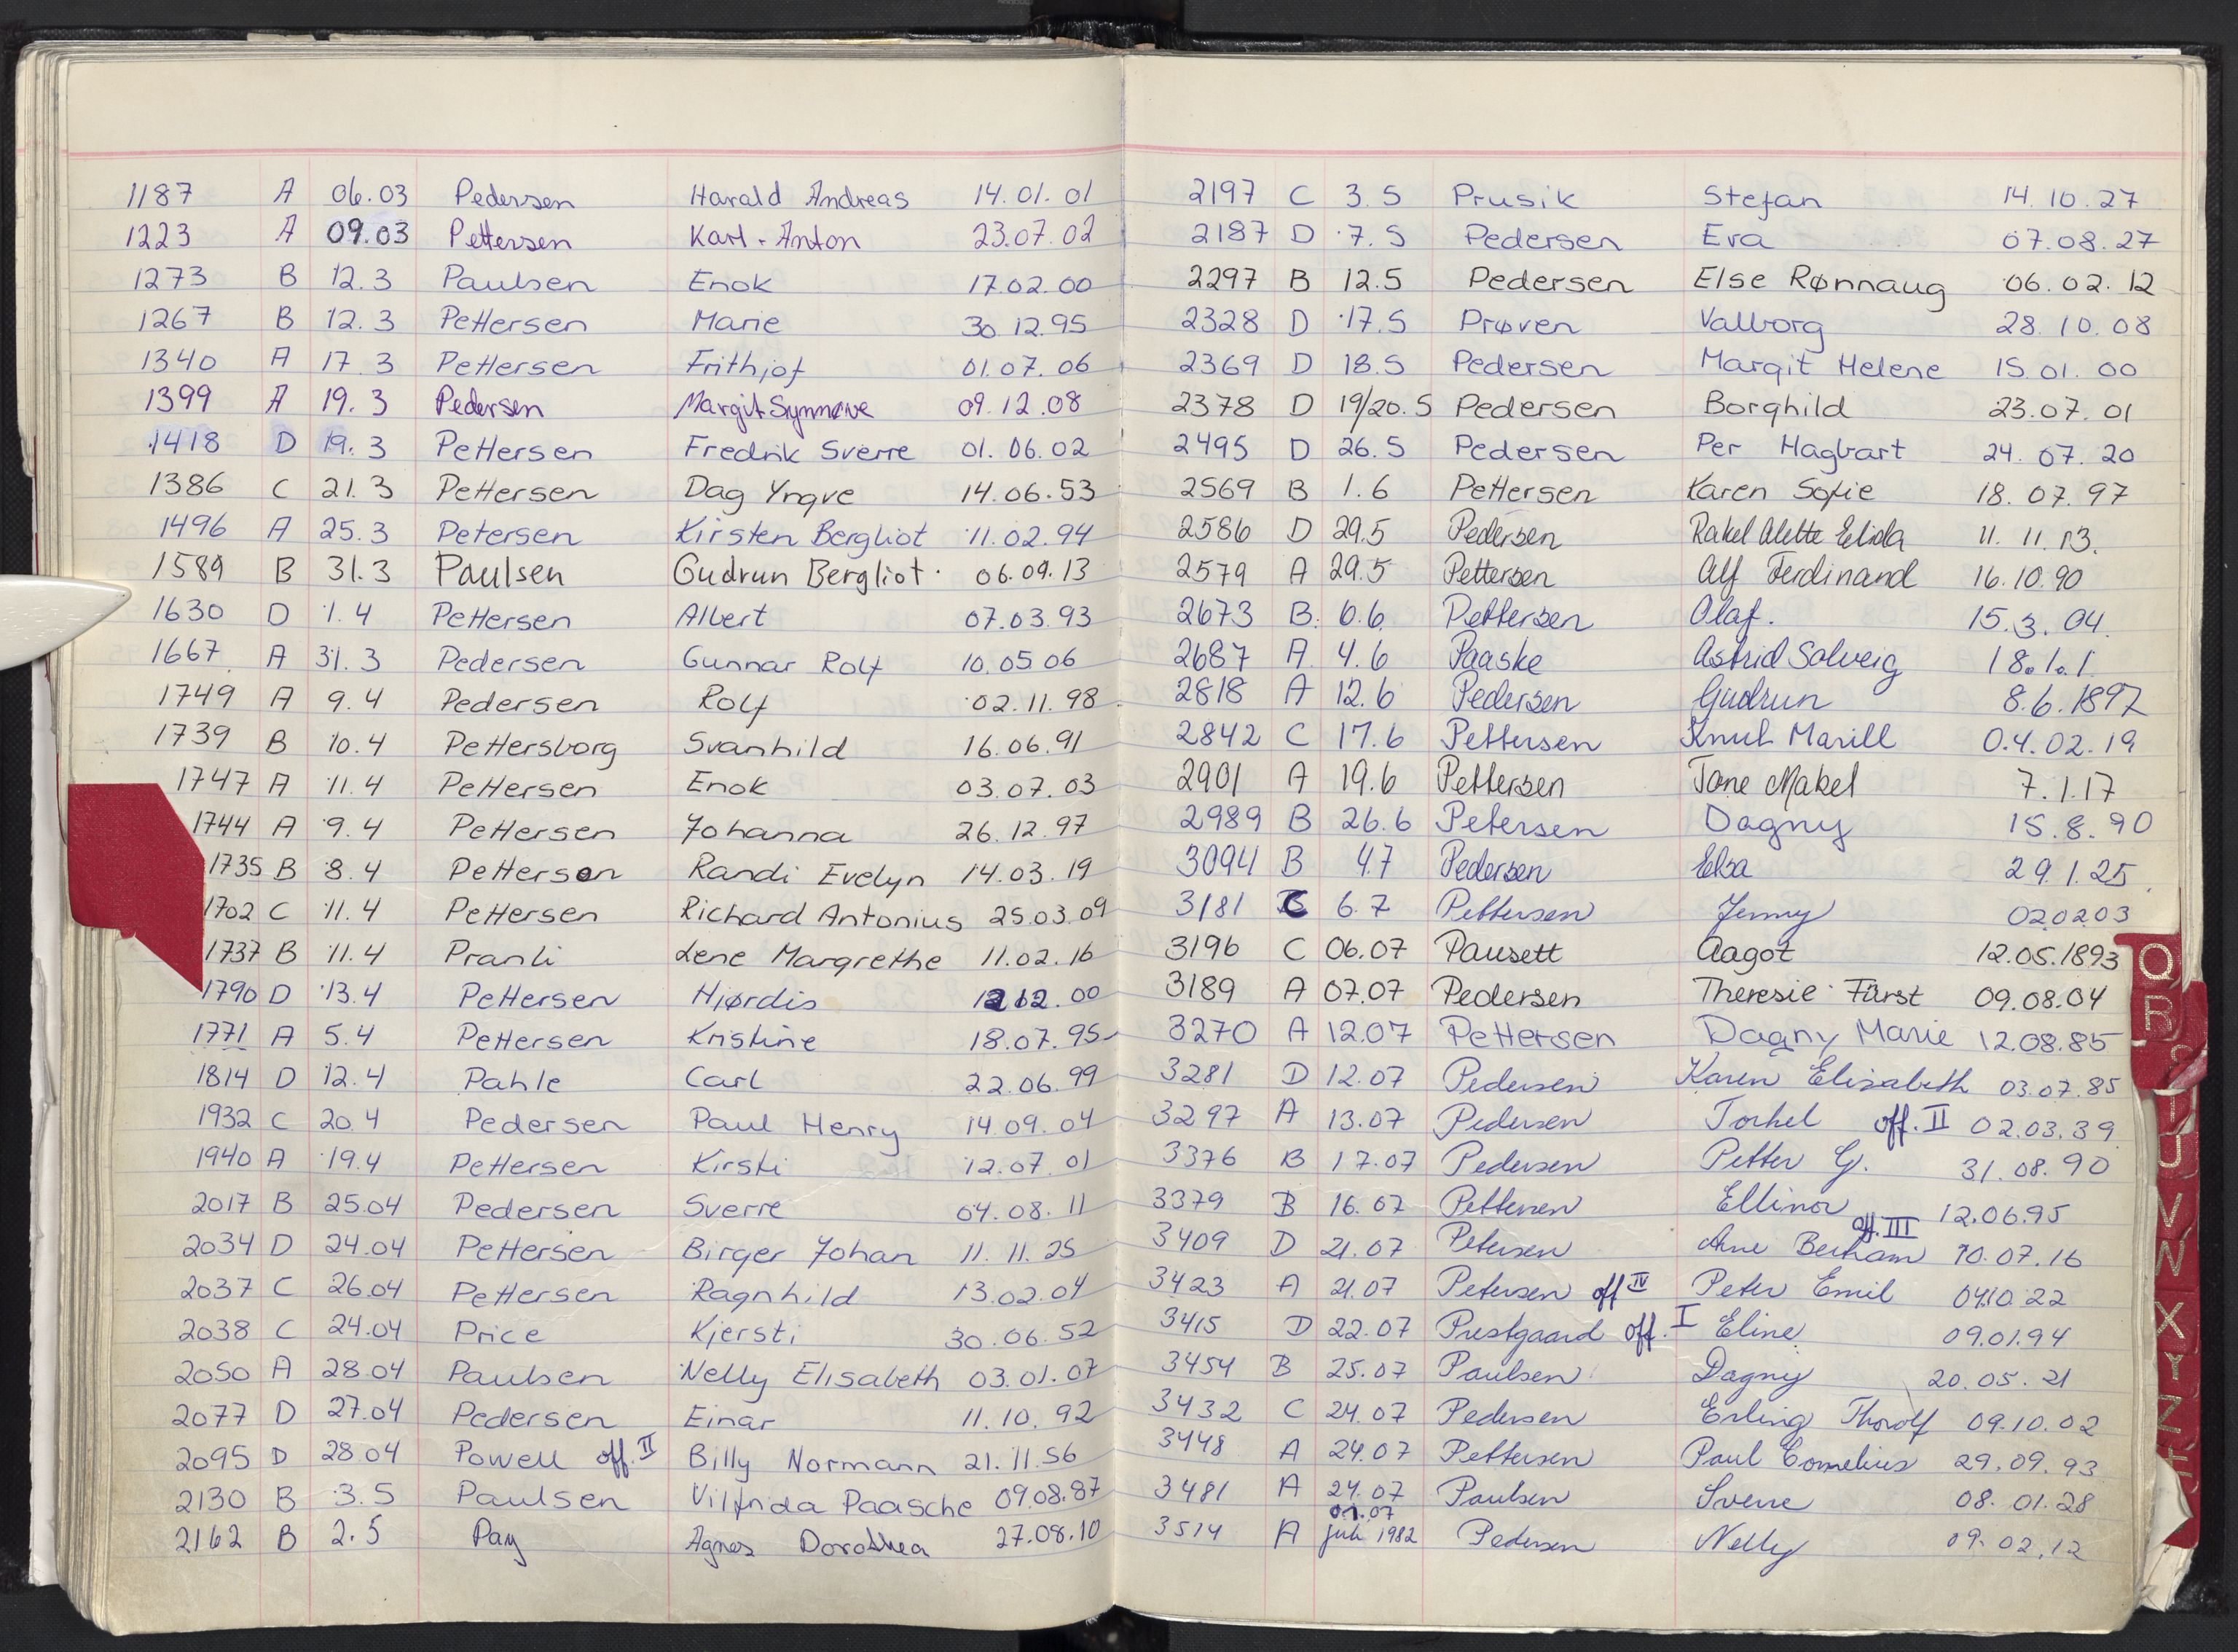 1187 A 06.03 Pedersen Harald Andreas 14.01.01
1223 A 09.03 Pettersen Karl-Anton 23.07.02
1273 B 12.3 Paulsen Enok 17.02.00
1267 B 12.3 Pettersen Marie 30.12.95
1340 A 17.3 Pettersen Frithjof 01.07.06
1399 A 19.3 Pedersen Margit Synnøve 09.12.08
1418 D 19.3 Pettersen Fredrik Sverre 01.06.02
1386 C 21.3 Pettersen Dag Yngve 14.06.53
1496 A 25.3 Petersen Kirsten Bergliot 11.02.94
1589 B 31.3 Paulsen Gudrun Bergliot 06.09.13
1630 D 1.4 Pettersen Albert 07.03.93
1667 A 31.3 Pedersen Gunnar Rolf 10.05 06
1749 A 9.4 Pedersen Rolf 02.11.98
1739 B 10.4 Pettersborg Svanhild 16.06.91
1747 A 11.4 Pettersen Enok 03.07.03
1744 A 9.4 Pettersen Johanna 26.12.97
1735 B 8.4 Petterson Randi Evelyn 14.03.19
1702 C 11.4 Pettersen Richard Antonius 25.03.09
1737 B 11.4 Pranli Lene Margrethe 11.02.16
1790 D 13.4 Pettersen Hjørdis 12.12.00
1771 A 5.4 Pettersen Kristine 18.07.95
1814 D 12.4 Pahle Carl 22.06.99
1932 C 20.4 Pedersen Paul Henry 14.09.04
1940 A 19.4 Pettersen Kirsti 12.07.01
2017 B 25.04 Pedersen Sverre 04.08.11
2034 D 24.04 Pettersen Birger Johan 11.11.25
2037 C 26.04 Pettersen Ragnhild 13.02.04
2038 C 24.04 Price Kjersti 30.06.52
2050 A 28.04 Paulsen Nelly Elisabeth 03.01.07
2077 D 27.04 Pedersen Einar 11.10.92
2095 D 28.04 Powell off. II Billy Normann 21.11.56
2130 B 3.5 Paulsen Vilfrida Paasche 09.08.87
2162 B 2.5 Pay Agnes Dorothea 27.08.10
2197 C 3.5 Prusik Stefan 14.10.27
2187 D 7.5 Pedersen Eva 07.08.27
2297 B 12.5 Pedersen Else Rønnaug 06.02.12
2328 D 17.5 Prøven Valborg 28.10.08
2369 D 18.5 Pedersen Margit Helene 15.01.00
2378 D 19/20.5 Pedersen Borghild 23.07.01
2495 D 26.5 Pedersen Per Hagbart 24.07.20
2569 B 1.6 Pettersen Karen Sofie 18.07.97
2586 D 29.5 Pedersen Rakel Alette Elida 11.11.13.
2579 A 29.5 Pettersen Alf Ferdinand 16.10.90
2673 B. 6.6 Pettersen Olaf. 15.3.04.
2687 A 4.6 Paaske Astrid Solveig 18.1.1
2818 A 12.6 Pedersen Gudrun 8.6.1897
2842 C 17.6 Pettersen Knut Marill 04.02.19
2901 A 19.6 Pettersen Tone Makel 7.1.17
2989 B 26.6 Petersen Dagny 15.8.90
3094 B 4.7 Pedersen Elsa 29.1.25
3181 C 6.7 Pettersen Jenny 020203
3196 C 06.07 Pausett Aagot 12.05.1893
3189 A 07.07 Pedersen Theresie Fürst 09.08.04
3270 A 12.07 Pettersen Dagny Marie 12.08.85
3281 D 12.07 Pedersen Karen Elisabeth 03.07.85
3297 A 13.07 Pedersen Torkel off. II 02.03.39
3376 B 17.07 Pedersen Petter G. 31.08.90
3379 B 16.07 Pettersen Ellinor 12.06.95
3409 D 21.07 Petersen Arne off. III 10.07.16
3423 A 21.07 Petersen off IV Peter Emil 04.10.22
3415 D 22.07 Prestgaard off. I Eline 09.01.94
3454 B 25.07 Paulsen Dagny 20.05.21
3432 C 24.07 Pedersen Erling Thorolf 09.10.02
3448 A 24.07 Pettersen Paul Cornelius 29.09.93
3481 A 24.07 Paulsen Sverre 08.01.28
3514 A 01.07 juli 1982 Pedersen Nelly 09.02.12
Q
R
T
U
V
W
X
Y
Z